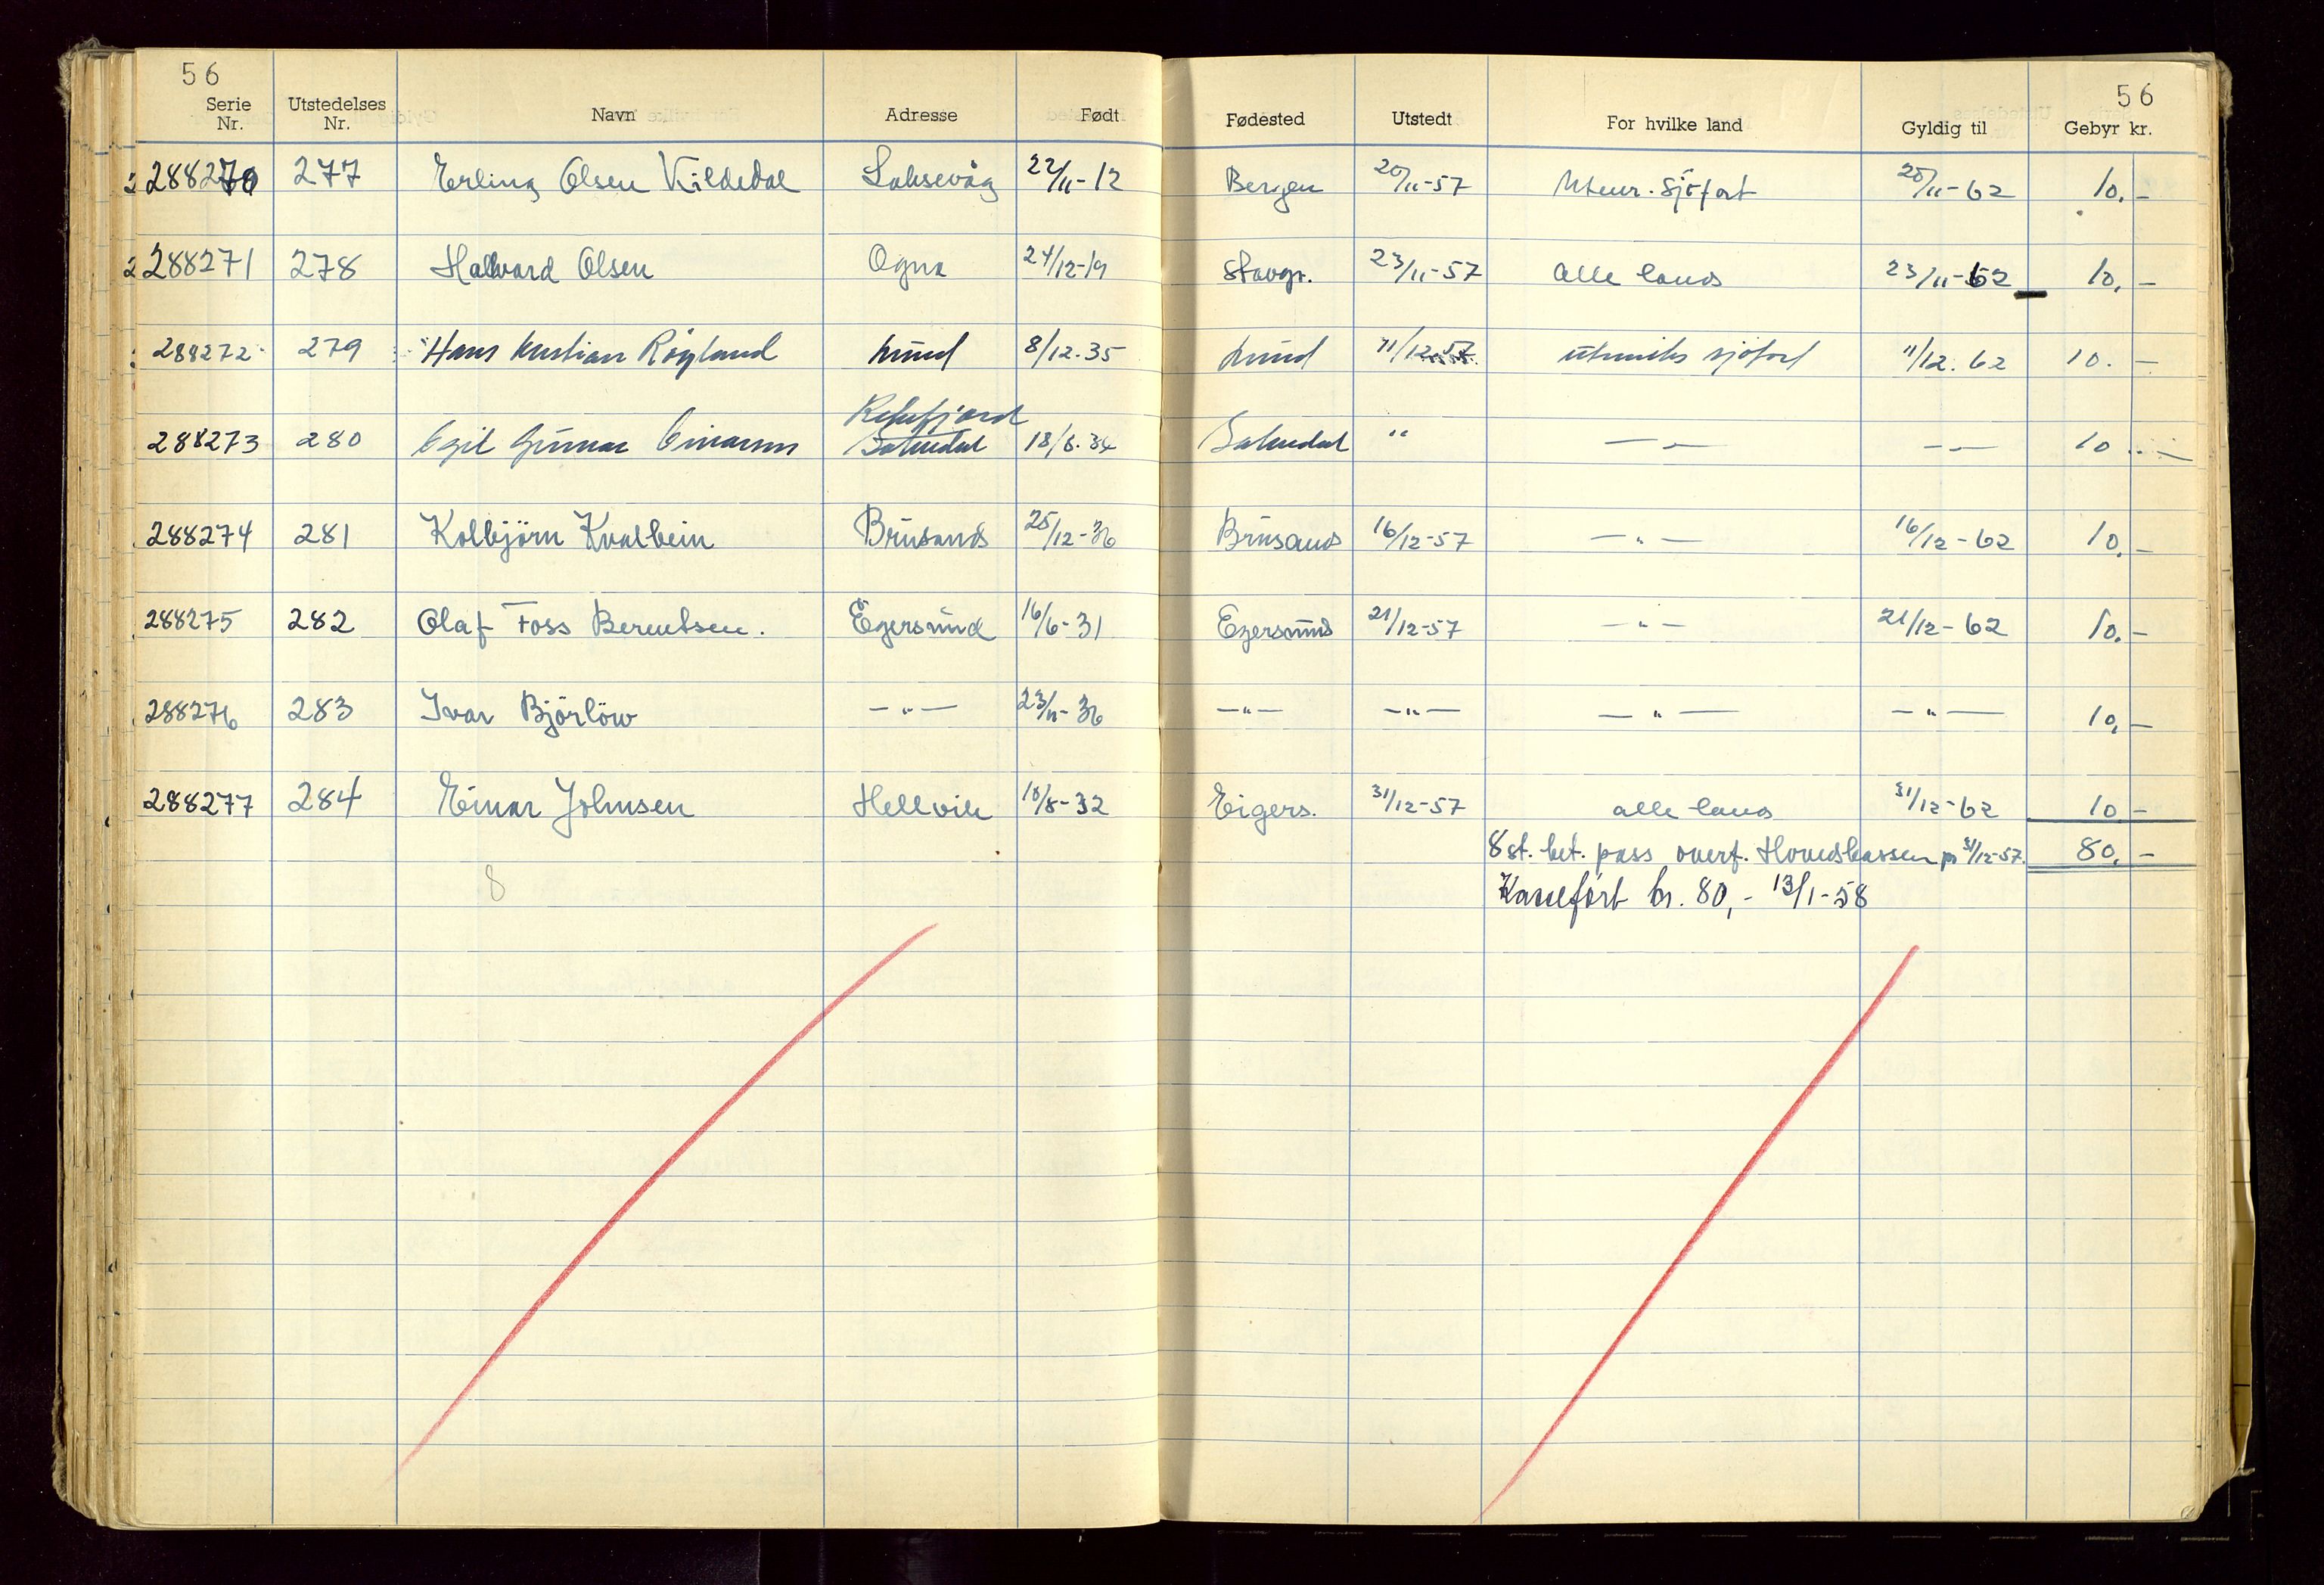 56 56
Serie Nr. Utstedelses Nr. Navn Adresse Født Fødested Utstedt For hvilke land Gyldig til Gebyr kr.
288270 277 Erling Olsen Kildedal Laksevåg 22/11-12 Bergen 20/11-57 Utenr. sjöfart 20/11-62 10,-
288271 278 Hallvard Olsen Ogna 24/12-19 Stavgr. 23/11-57 alle land 23/11-62 10,-
288272 279 Hans Kristian Røgland Lund 8/12.35 Lund 11/12.57 utenriks sjöfart 11/12.62 10.-
Rekefjord
288273 280 Egil Gunnar Einarsen Bakkedal 18/6.34 " — " — — " — 10.-
288274 281 Kolbjörn Kvalbein Brusand 25/12-36 Brusand 16/12-57 — " — 16/12-62 10,-
288275 282 Olaf Foss Berentsen. Egersund 16/6-31 Egersund 21/12-57 — " — 21/12-62 10,-
288276 283 Ivar Björlöw — " — 23/11-36 — " — — " — — " — — " — 10,-
288277 284 Einar Johnsen Hellvik 10/8-32 Eigers. 31/12-57 alle land 31/12-62 10-
8 st. bet. pass overf. Hovedkassen pr 31/12-57. 80,-
8 Kasseført kr. 80,- 13/1-58